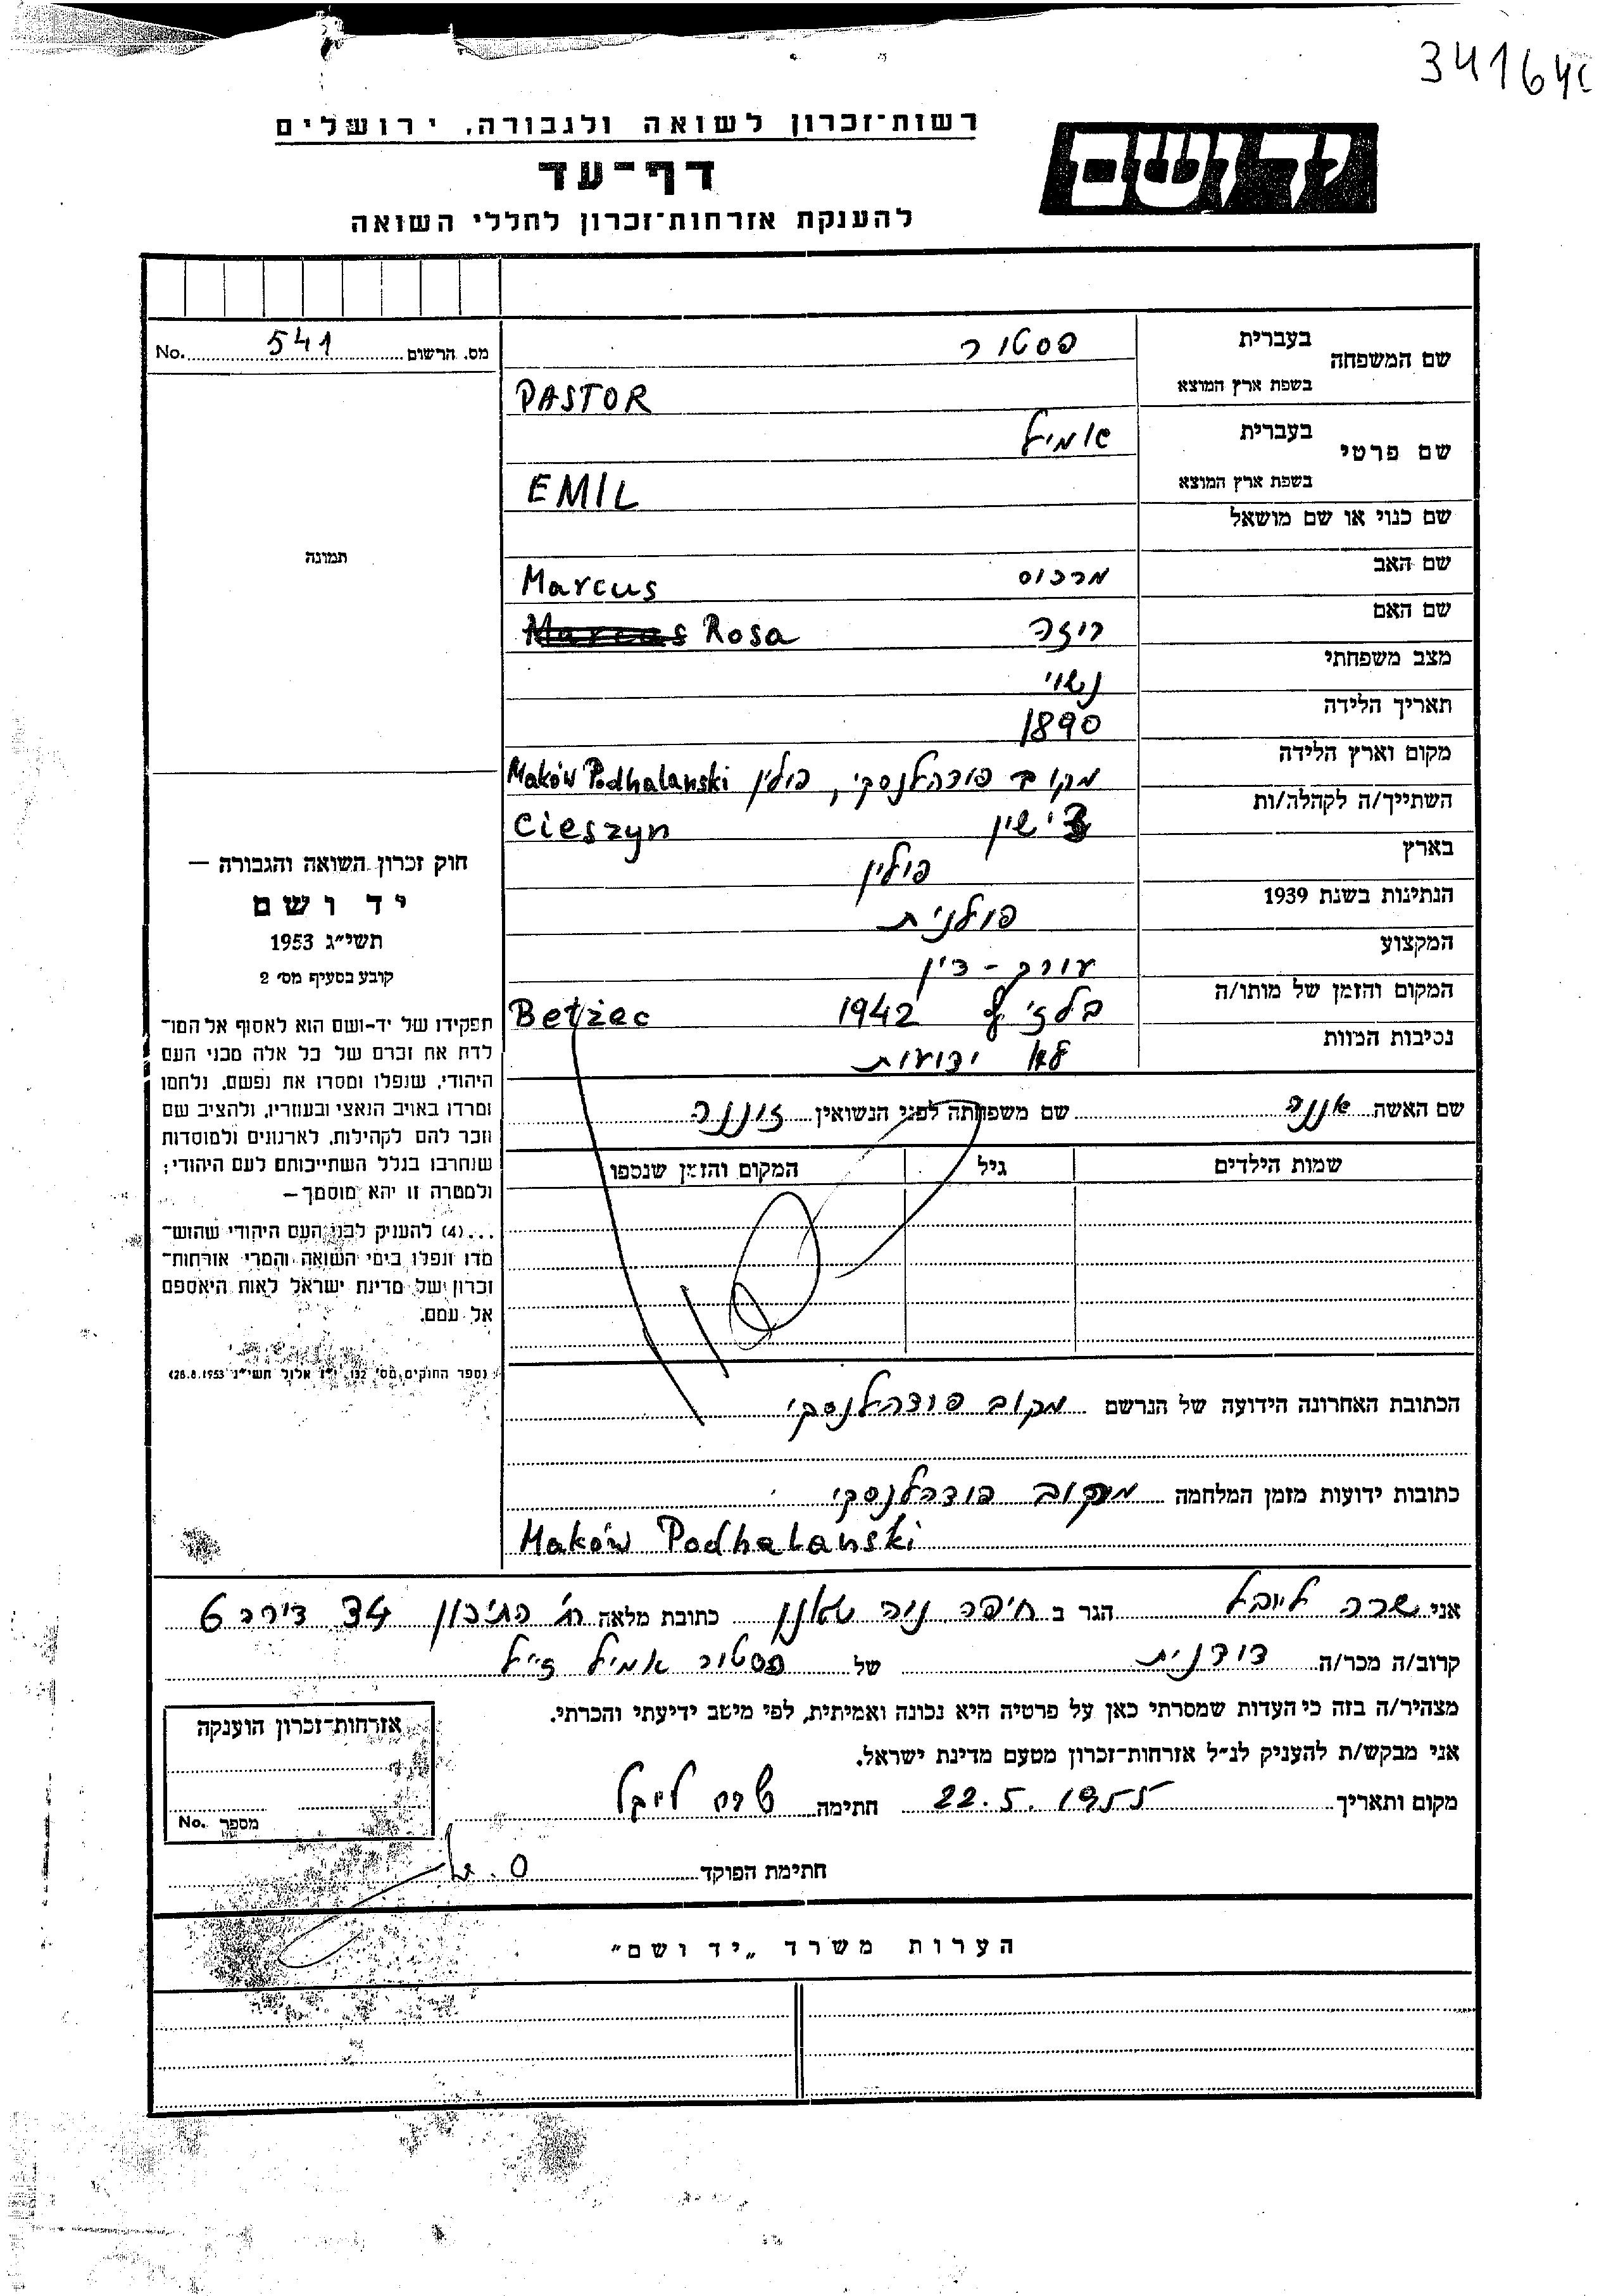 34164
רשות־זכרון לשואה ולגבורה, ירושלים
יד ושם
דף־עד
להענקת אזרחות־זכרון לחללי השואה
מס. הרשום 541 No.
תמונה
שם המשפחה בעברית פסטור
בשפת ארץ המוצא PASTOR
שם פרטי בעברית אמיל
בשפת ארץ המוצא EMIL
שם כנוי או שם מושאל
שם האב מרכוס Marcus
שם האם רוזה Rosa
מצב משפחתי נשוי
תאריך הלידה 1890
מקום וארץ הלידה מקוב פודהלנסקי, פולין Maków Podhalanski
השתייך/ה לקהלה/ות צישין Cieszyn
בארץ פולין
הנתינות בשנת 1939 פולנית
המקצוע עורך-דין
המקום והזמן של מותו/ה 1942 Betżec
נסיבות המוות לא ידועות
שם האשה אננה שם משפחתה לפני הנשואין
שמות הילדים גיל המקום והזמן שנספו
הכתובת האחרונה הידועה של הנרשם מקוב פודהלנסקי
כתובות ידועות מזמן המלחמה מקוב פודהלנסקי
Maków Podhalanski
חוק זכרון השואה והגבורה —
יד ושם
תשי״ג 1953
קובע בסעיף מס׳ 2
תפקידו של יד-ושם הוא לאסוף אל המו־
לדת את זכרם של כל אלה מבני העם
היהודי, שנפלו ומסרו את נפשם, נלחמו
ומרדו באויב הנאצי ובעוזריו, ולהציב שם
וזכר להם לקהילות, לארגונים ולמוסדות
שנחרבו בגלל השתייכותם לעם היהודי;
ולמטרה זו יהא מוסמך—
...(4) להעניק לבני העם היהודי שהוש־
מדו ונפלו בימי השואה והמרי אזרחות־
זכרון של מדינת ישראל לאות היאספם
אל עמם.
(ספר החוקים מס׳ 132, י״ז אלול תשי״ג 28.8.1953)
אני שרה הגר ב חיפה נוה שאנן כתובת מלאה רח׳ התיכון 34 דירה 6
קרוב/ה מכר/ה דודנית של פסטור אמיל ז״ל
מצהיר/ה בזה כי העדות שמסרתי כאן על פרטיה היא נכונה ואמיתית, לפי מיטב ידיעתי והכרתי.
אני מבקש/ת להעניק לנ״ל אזרחות־זכרון מטעם מדינת ישראל.
מקום ותאריך 22.5.1955 חתימה שרה
חתימת הפוקד
אזרחות־זכרון הוענקה
מספר No.
הערות משרד „יד ושם״